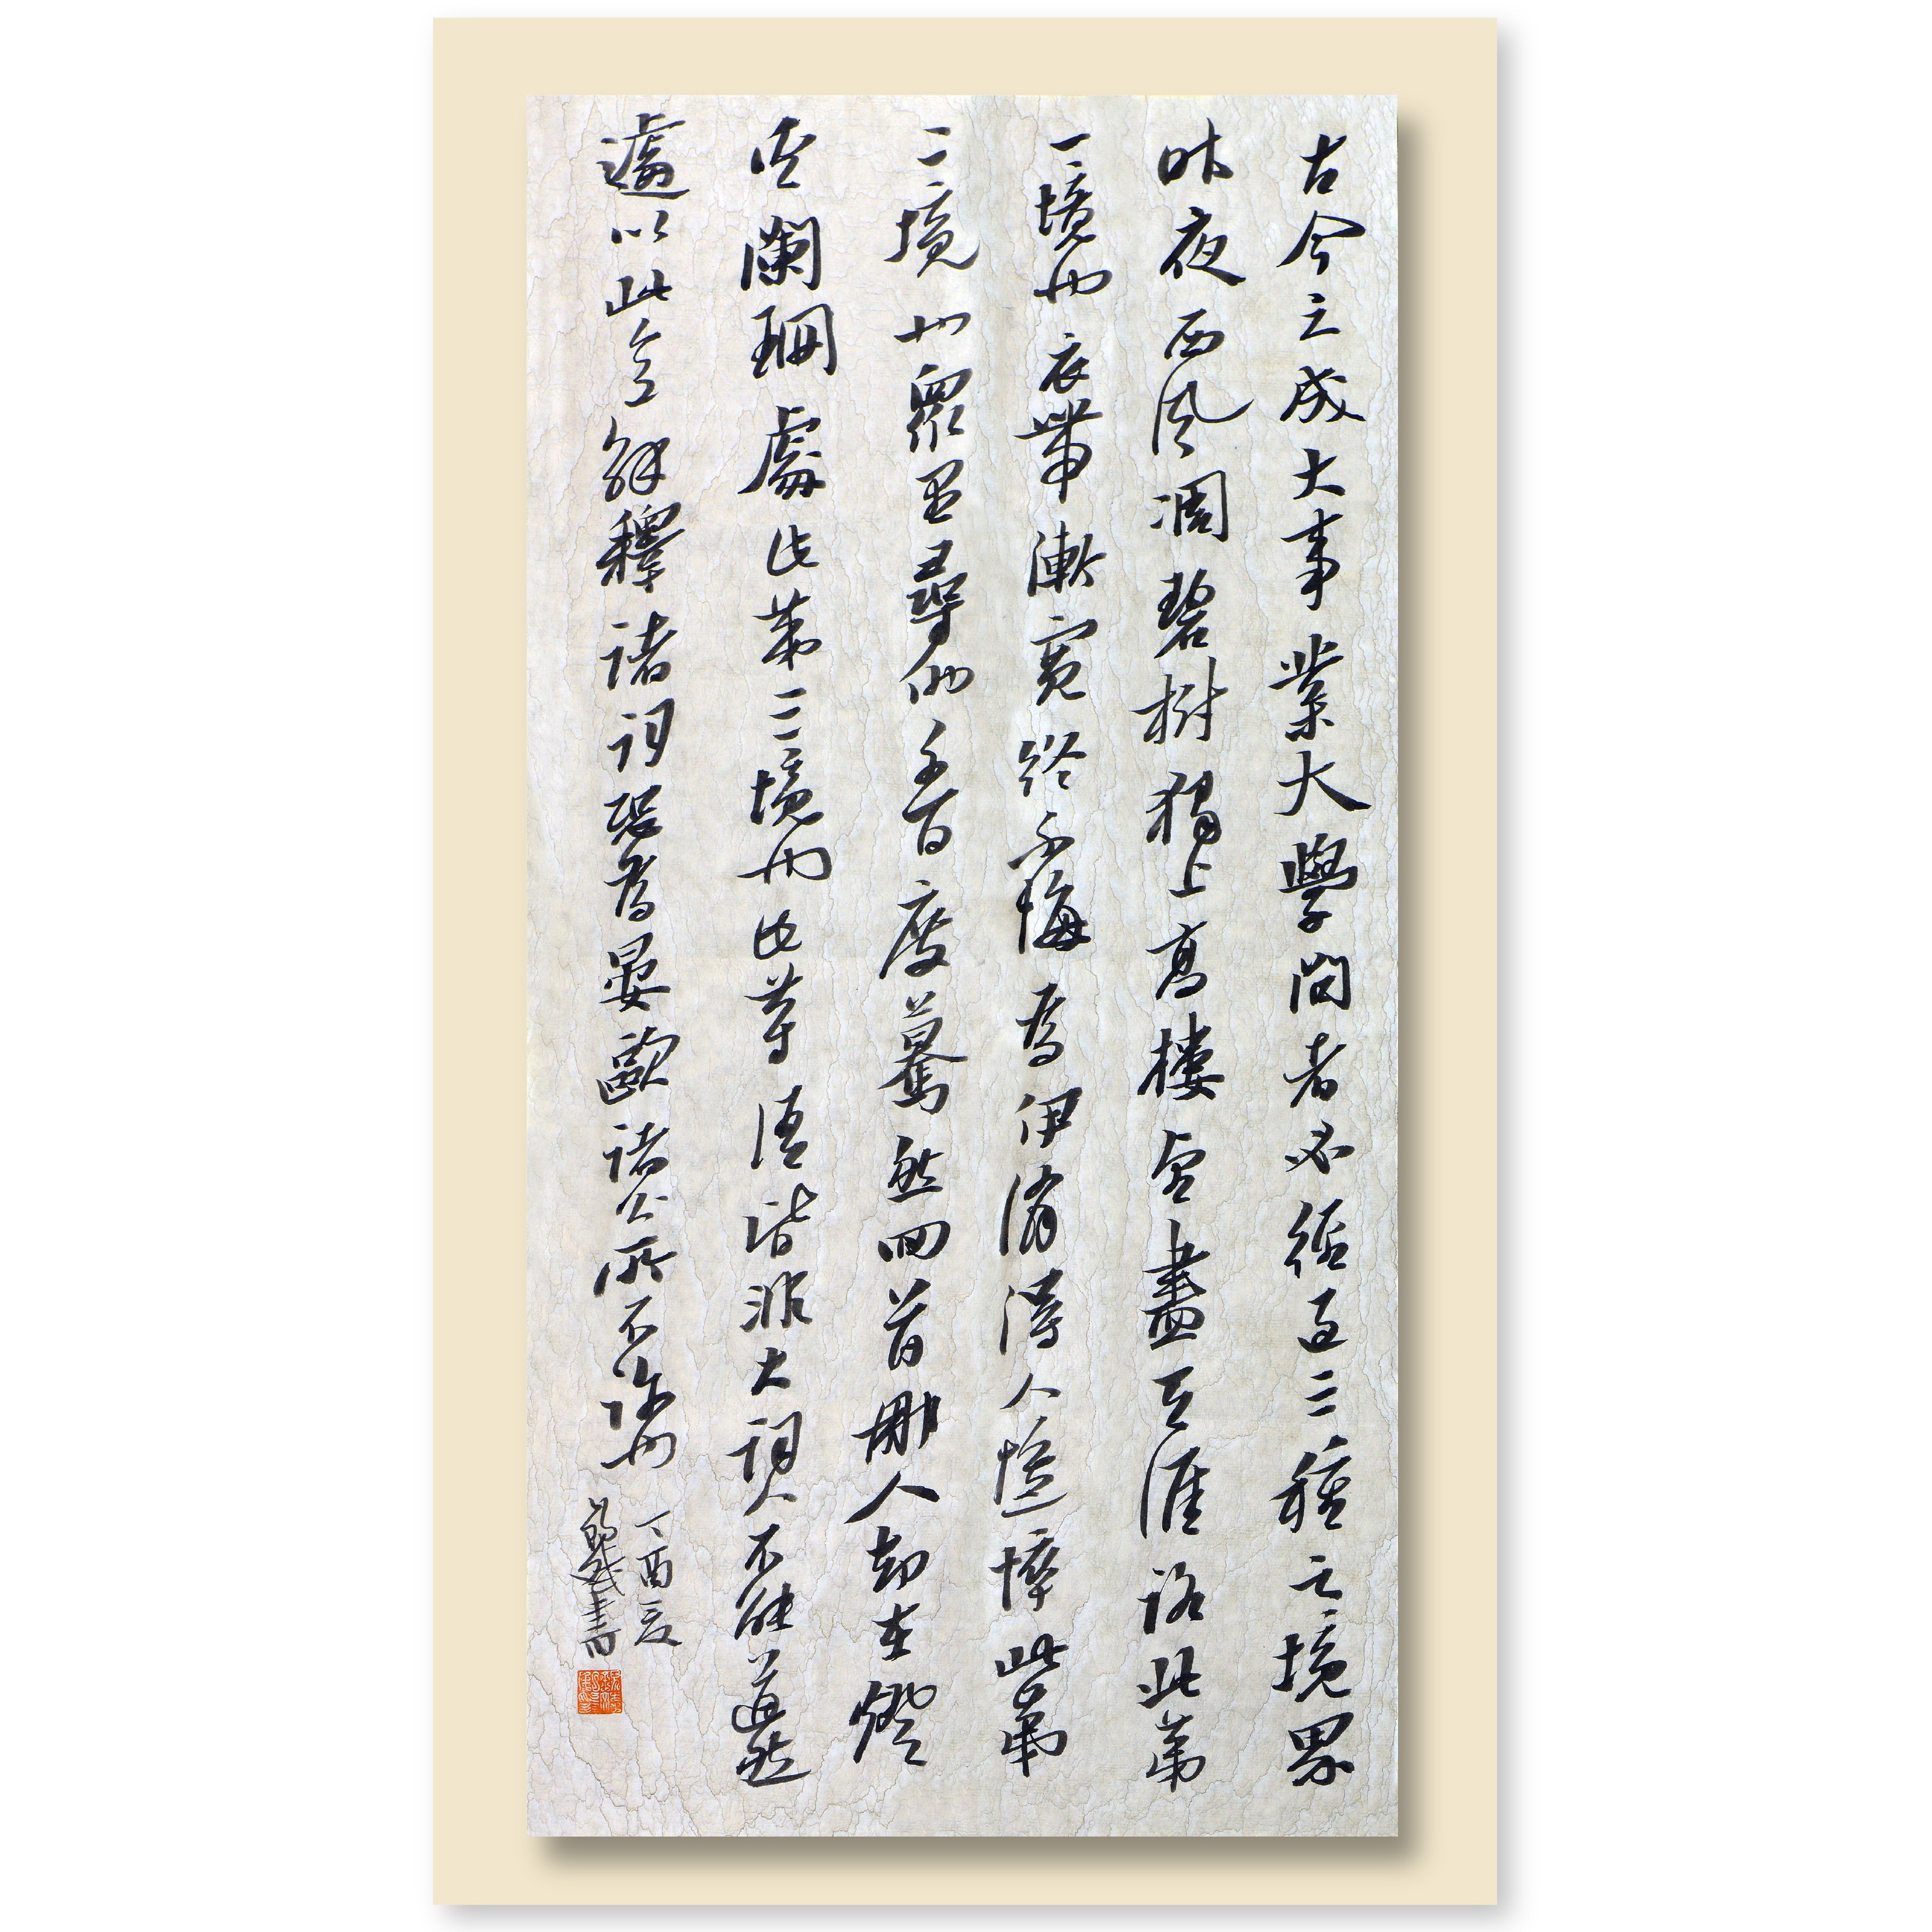 古今之成大事業大學問者必經過三種之境界
昨夜西風凋碧樹獨上高樓望盡天涯路此第
一境也衣帶漸寬終不悔為伊消得人憔悴此第
二境也眾里尋他千百度驀然回首那人却在燈
火闌珊處此第三境也此等語皆非大詞人不能道然
遽以此意解釋諸詞恐為晏歐諸公所不許也
丁酉夏
書